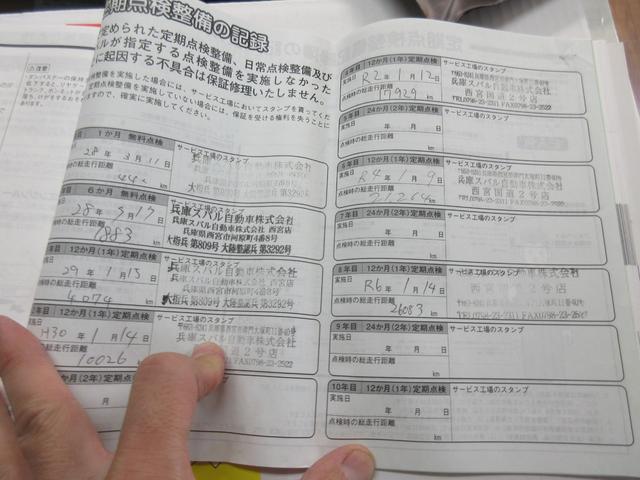 期点検整備の記録
定められた定期点検整備、日常点検整備及び
ルが指定する点検整備を実施しなかった
に起因する不具合は保証修理いたしません。
検整備を実施した場合には、サービス工場においてスタンプを貰ってくだ
定期点検整備を実施していない場合には、保証を受ける権利を失うことに
ますので、確実に実施してください。
注意
1か月 無料点検
サービス工場のスタンプ
28年 3月 11日
兵庫スバル自動車株式会社
の総走行距離
km
6か月 無料点検
サービス工場のスタンプ
兵庫スバル自動車株式会社
兵庫スバル自動車株式会社 西宮店
兵庫県西宮市河原町4番8号
大指兵 第809号 大陸整認兵 第3292号
時の総走行距離
1883 km
12か月(1年)定期点検
サービス工場のスタンプ
29年 1月 15日
兵庫スバル自動車株式会社
兵庫スバル自動車株式会社 西宮店
兵庫県西宮市河原町4番8号
大指兵 第809号 大陸整認兵 第3292号
時の総走行距離
4074 km
12か月(1年)定期点検
サービス工場のスタンプ
H30年 1月 14日
兵庫スバル自動車株式会社
西宮国道2号店
の総走行距離
10026
(2年)定期点検
月 日
12か月(1年)定期点検
サービス工場のスタンプ
実施日
R2年 1月 12日
兵庫スバル自動車株式会社
西宮国道2号店
TEL0798-23-2311 FAX0798-23-2522
点検時の総走行距離
17929 km
24か月(2年)定期点検
サービス工場のスタンプ
実施日
年 月 日
点検時の総走行距離
km
12か月(1年)定期点検
サービス工場のスタンプ
実施日
R4年 1月 9日
兵庫スバル自動車株式会社
西宮国道2号店
点検時の総走行距離
21264 km
7年目 24か月(2年)定期点検
サービス工場のスタンプ
実施日
年 月 日
点検時の総走行距離
km
8年目 12か月(1年)定期点検
サービス工場のスタンプ
実施日
R6年 1月 14日
兵庫スバル自動車株式会社
西宮国道2号店
点検時の総走行距離
26083 km
9年目 24か月(2年)定期点検
サービス工場のスタンプ
実施日
年 月 日
点検時の総走行距離
km
10年目 12か月(1年)定期点検
サービス工場のスタンプ
実施日
年 月 日
点検時の総走行距離
km